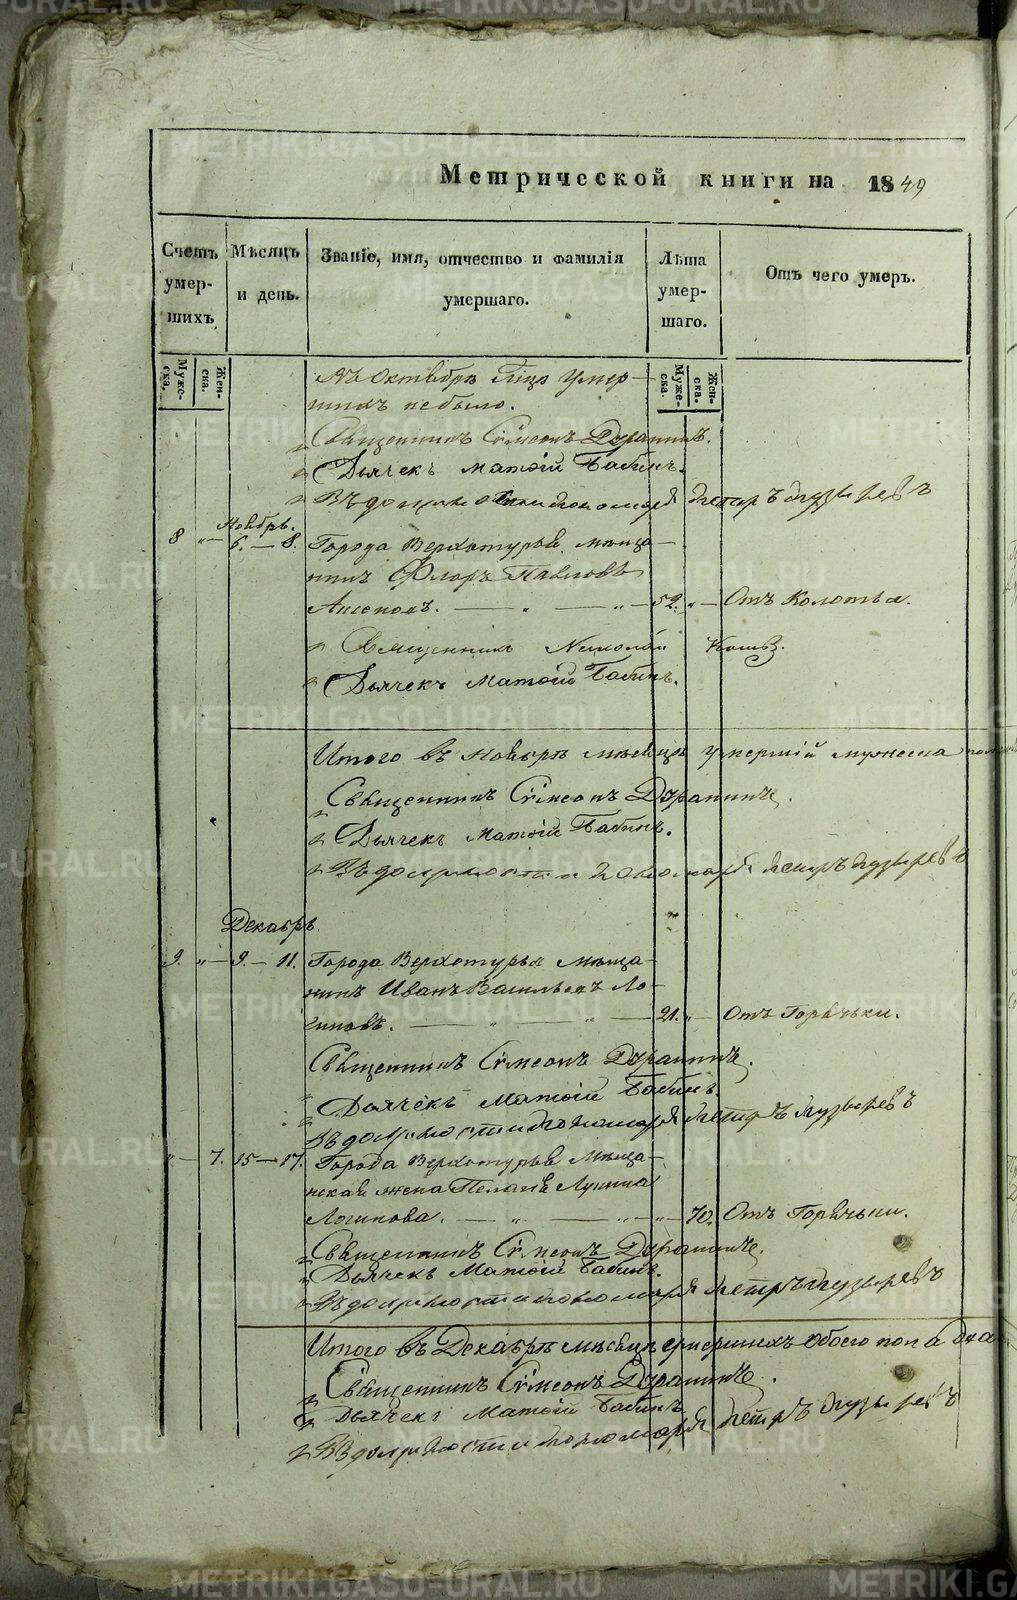 Метрической книги на 1849
Счетъ умер-шихъ
Мѣсяцъ и день.
Званіе, имя, отчество и фамилія умершаго.
Лѣта умер-шаго.
Отъ чего умеръ.
Муже-ска. Жен-ска.
Муже-ска. Жен-ска.
Въ Октябрѣ мцѣ умер-
шихъ небыло.
Священникъ Сѵмеонъ
Дьячекъ Матѳій Бабинъ.
Въ должности пономаря Петръ Пузыревъ
Ноябрь.
8 „ 6. — 8. Города Верхотурья мѣща-
нинъ Флоръ Павловъ
— „ — „ — 52. „ — Отъ Колотья.
Священникъ Николай
Дьячекъ Матѳій Бабинъ.
Итого въ Ноябрѣ мѣсяцѣ умершій мужеска
Священникъ Сѵмеонъ
Дьячекъ Матѳій Бабинъ.
Въ должности пономаря Петръ Пузыревъ
Декабрь.
9. „ — 9. — 11. Города Верхотурья мѣща-
нинъ Иванъ Васильевъ Ло-
гиновъ. — „ — „ — 21. „ — Отъ Горячьки.
Священникъ Сѵмеонъ
Дьячекъ Матѳій Бабинъ.
Въ должности пономаря Петръ Пузыревъ
„ — 7. 15 — 17. Города Верхотурья Мѣща-
нская жена Пелагѣя Лукина
Логинова. — „ — „ — „ — 70. Отъ Горячьки.
Священникъ Сѵмеонъ
Дьячекъ Матѳій Бабинъ.
Въ должности пономаря Петръ Пузыревъ
Итого въ Декабрѣ мѣсяцѣ умершихъ обоего пола два
Священникъ Сѵмеонъ
Дьячекъ Матѳій Бабинъ
Въ должности пономаря Петръ Пузыревъ
METRIKI.GASO-URAL.RU